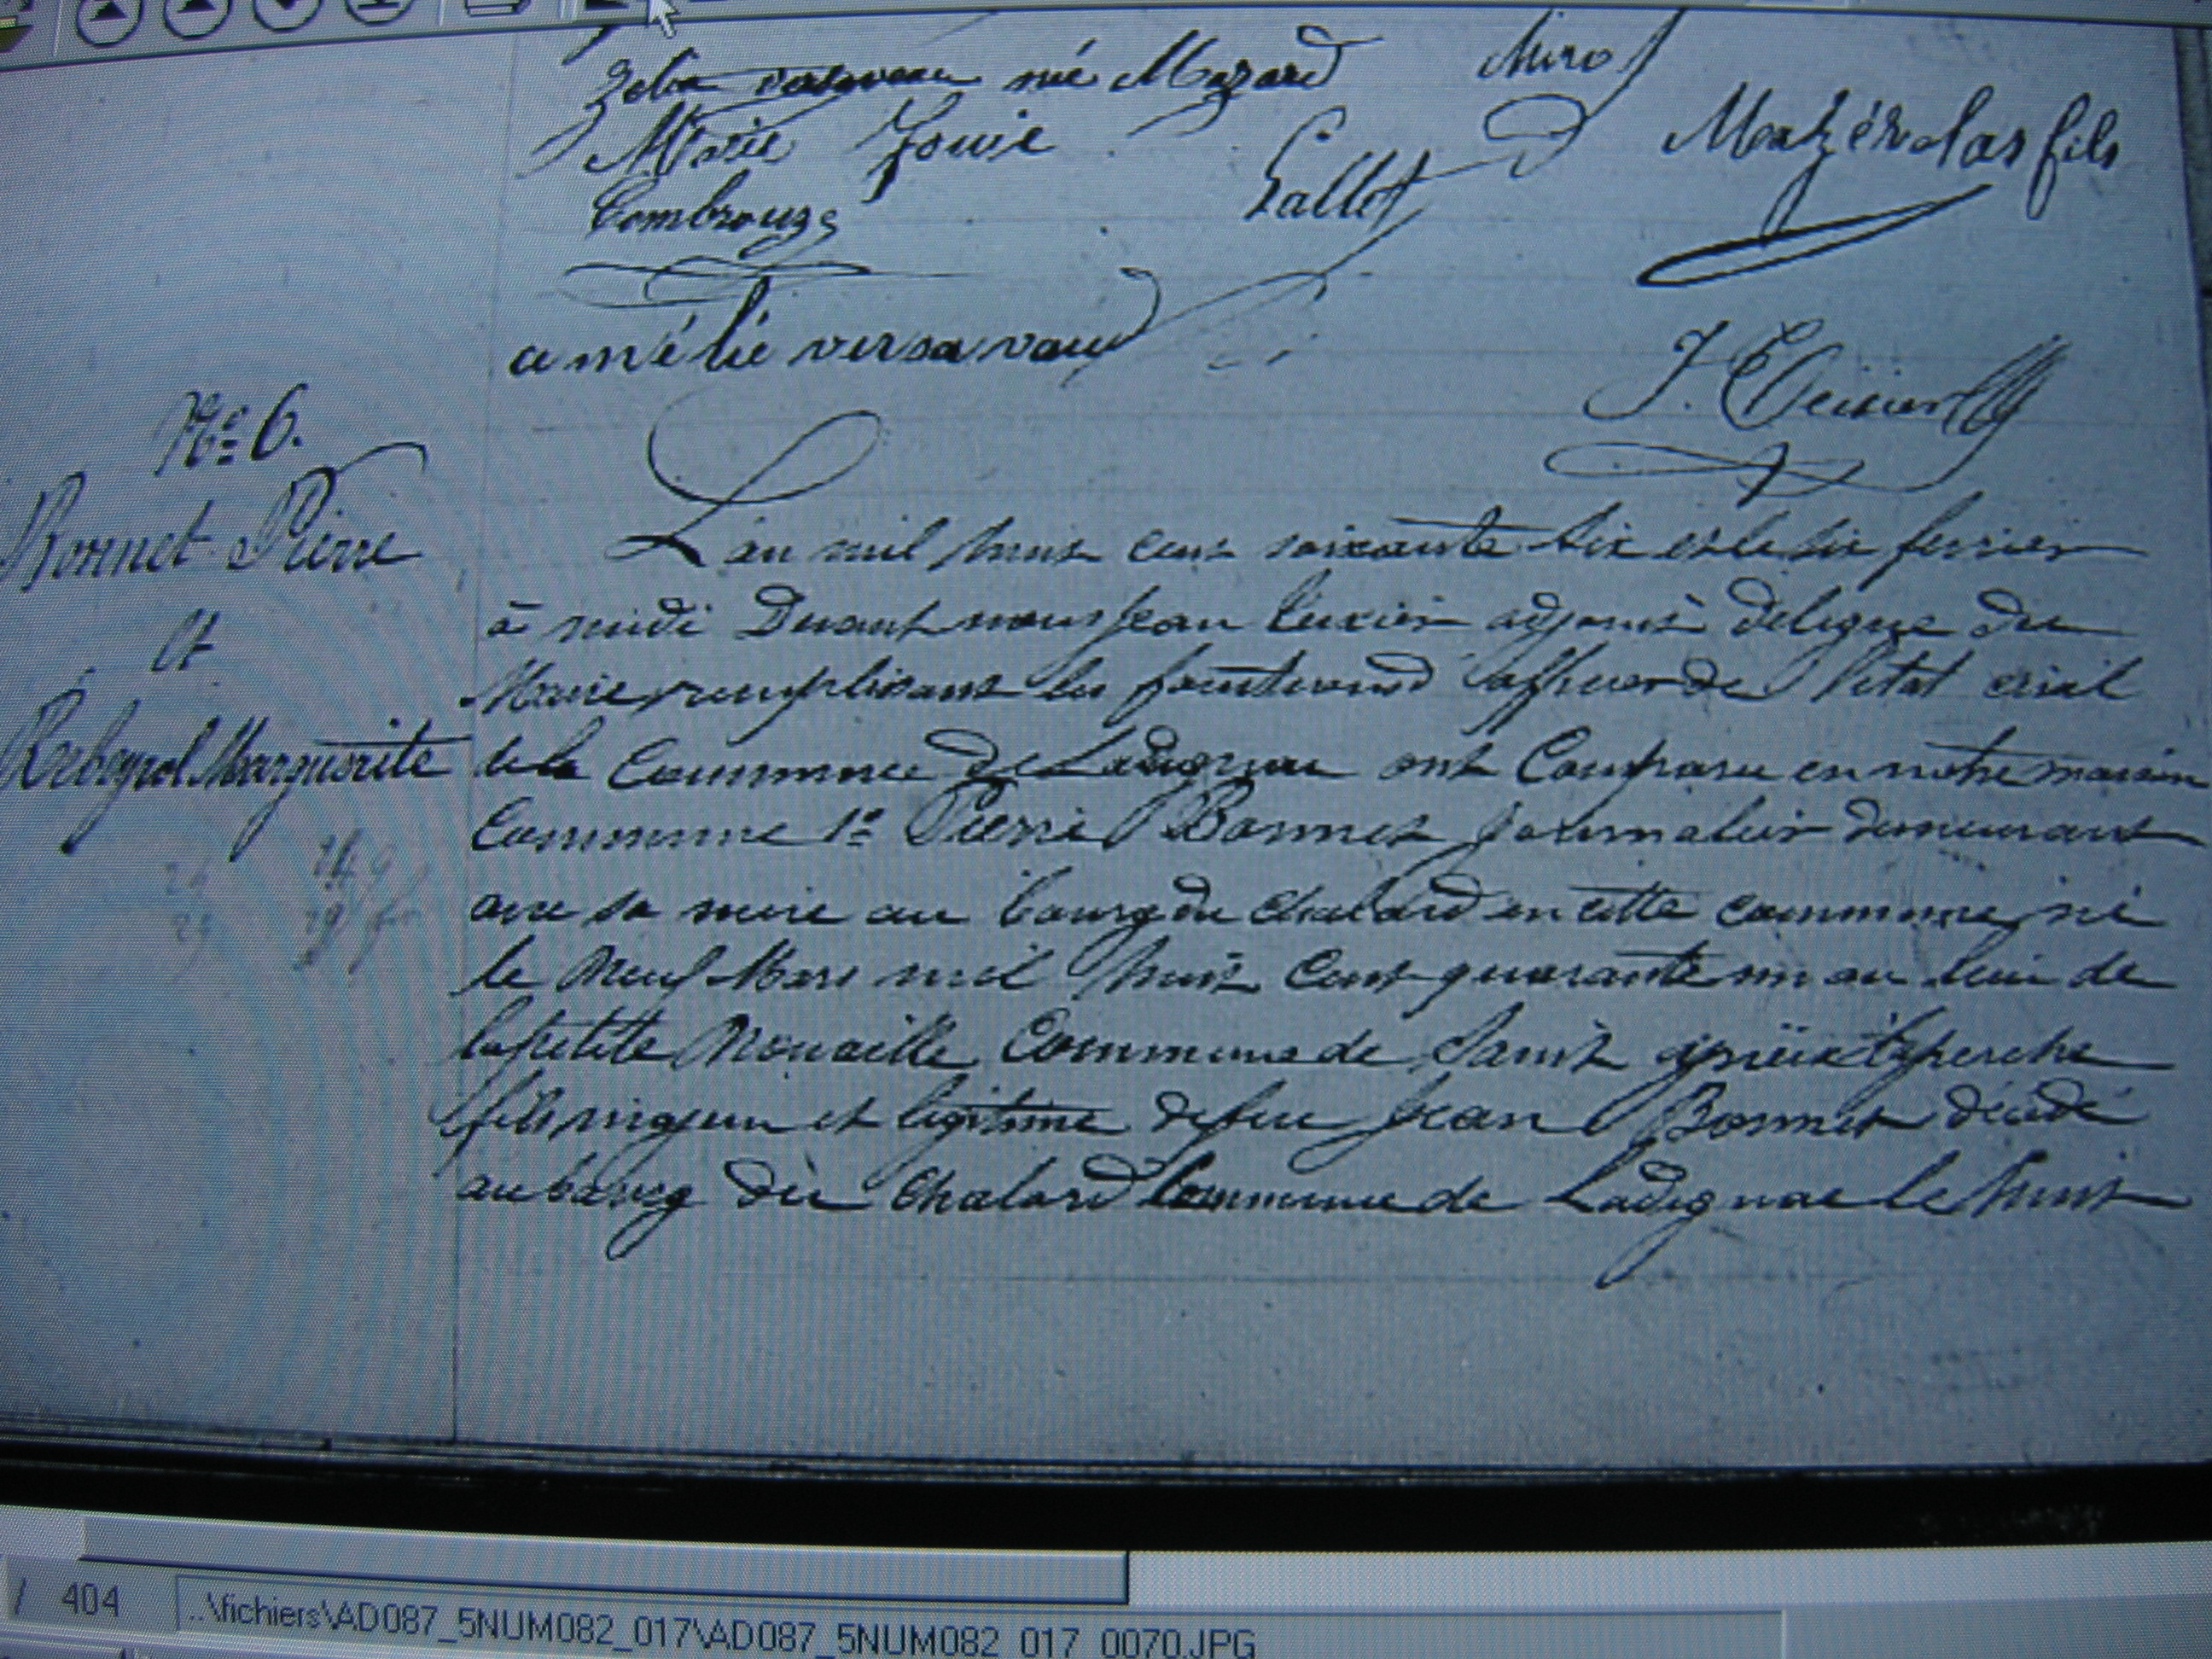 née Mazard
Miro
Marie Jouie
Lallet
Mazérolas fils
Combrouze
amélie versavaud
J. Teixier
N° 6.
Bonnet Pierre
et
Rebeyrol Marguerite
L'an mil huit cent soixante six et le six fevrier
à midi Devant nous Jean teixier adjoint délégué du
Maire remplissant les fonctions d'officier de l'état civil
de la Commune de Ladignac ont Comparu en notre maison
Commune 1° Pierre Bonnet journalier demeurant
avec sa mère au bourg du Chalard en cette commune, né
le Neuf Mars mil huit Cent quarante un au lieu de
la petite Nouaille Commune de Saint yrieix laperche
fils majeur et légitime de feu Jean Bonnet décédé
au bourg du Chalard Commune de Ladignac le huit
/ 404
..\fichiers\AD087_5NUM082_017\AD087_5NUM082_017_0070.JPG